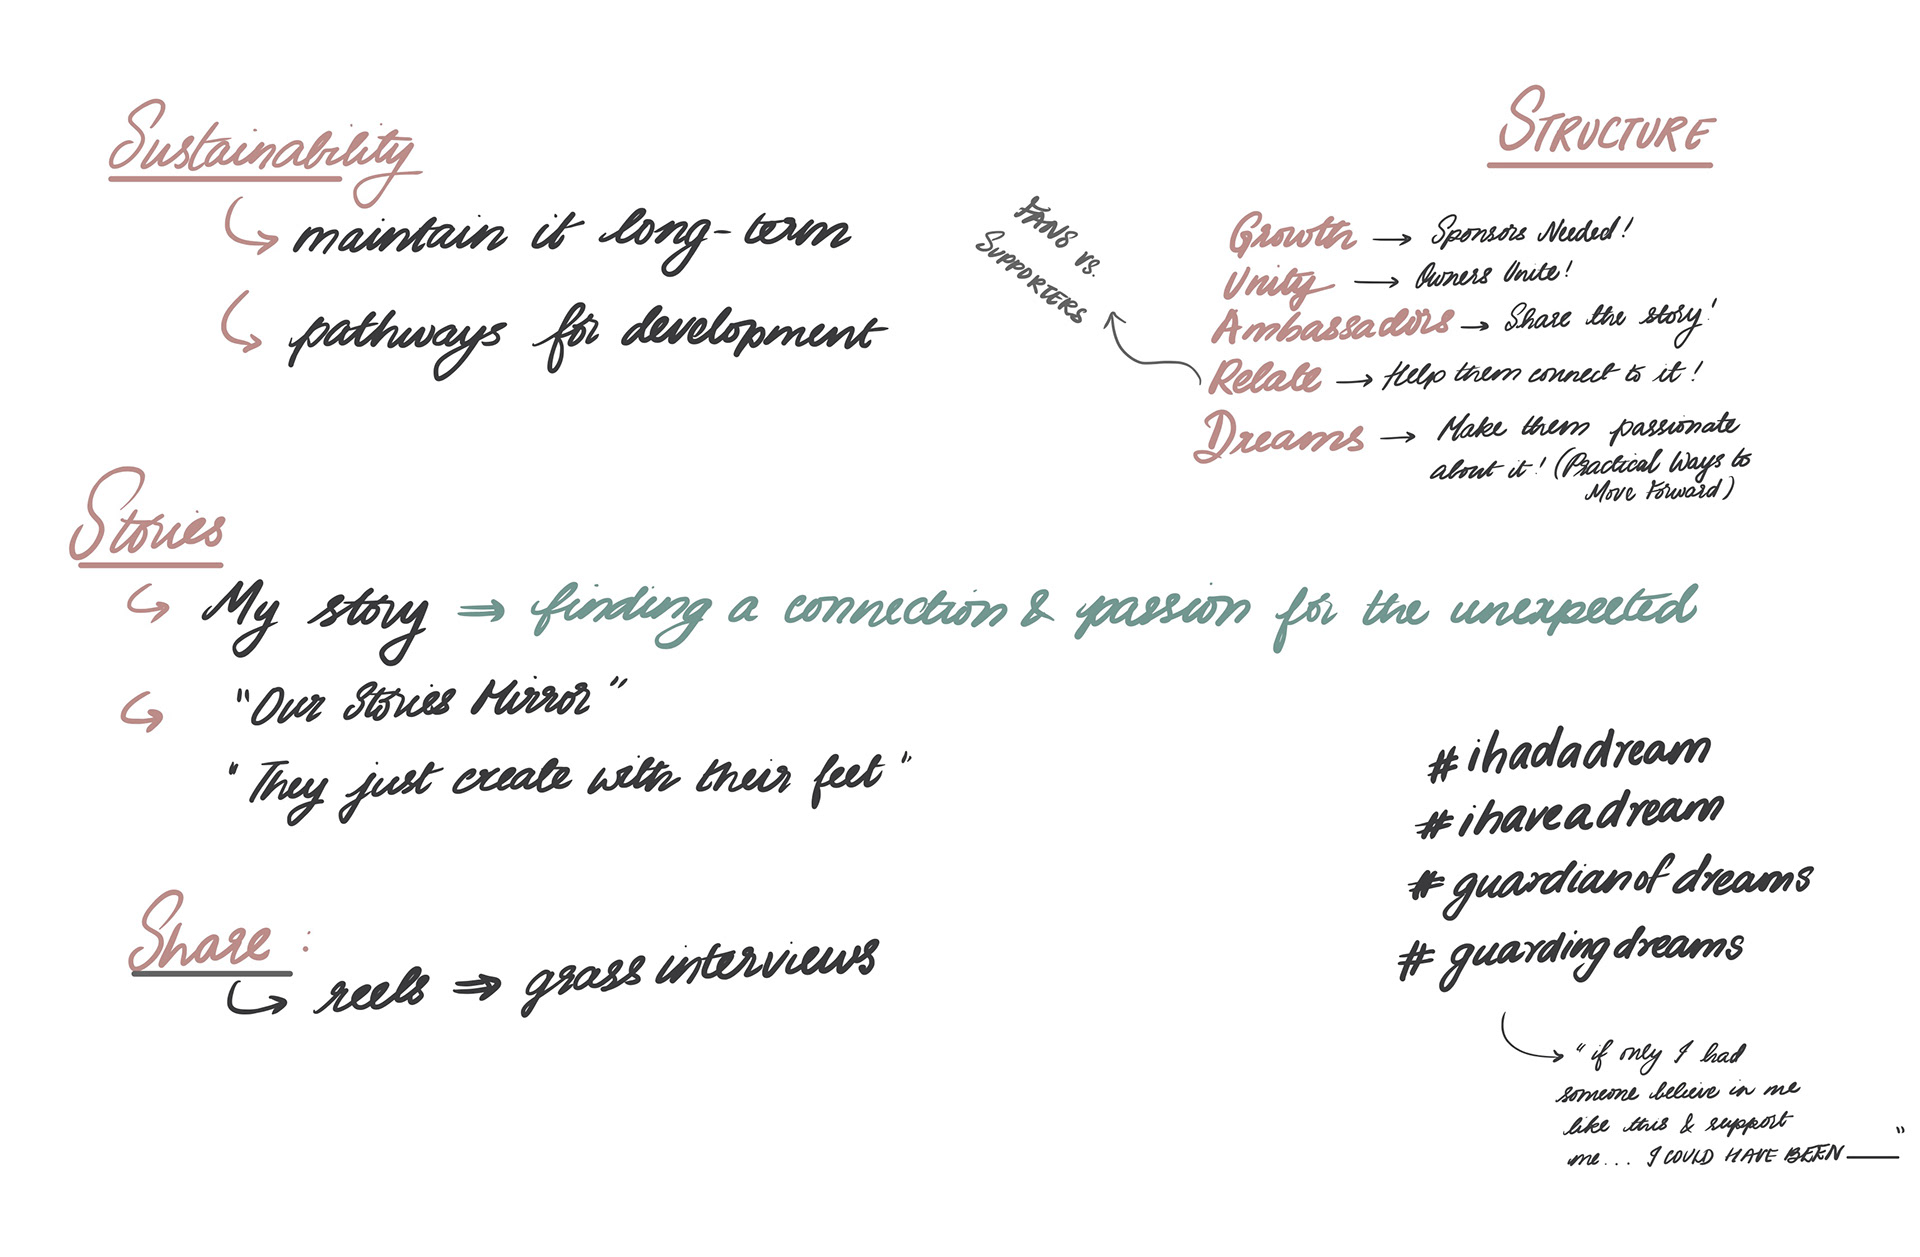 Sustainability
↳ maintain it long-term
↳ pathways for development
STRUCTURE
Growth → Sponsors Needed!
Unity → Owners Unite!
Ambassadors → Share the story!
Relate → Help them connect to it!
FANS VS.
SUPPORTERS
Dreams → Make them passionate
about it! (Practical Ways to
Move Forward)
Stories
↳ My story ⇒ finding a connection & passion for the unexpected
↳ "Our Stories Mirror"
"They just create with their feet"
Share:
↳ reels ⇒ grass interviews
#ihadadream
#ihaveadream
#guardianofdreams
#guardingdreams
↳ "if only I had
someone believe in me
like this & support
me... I COULD HAVE BEEN ____"